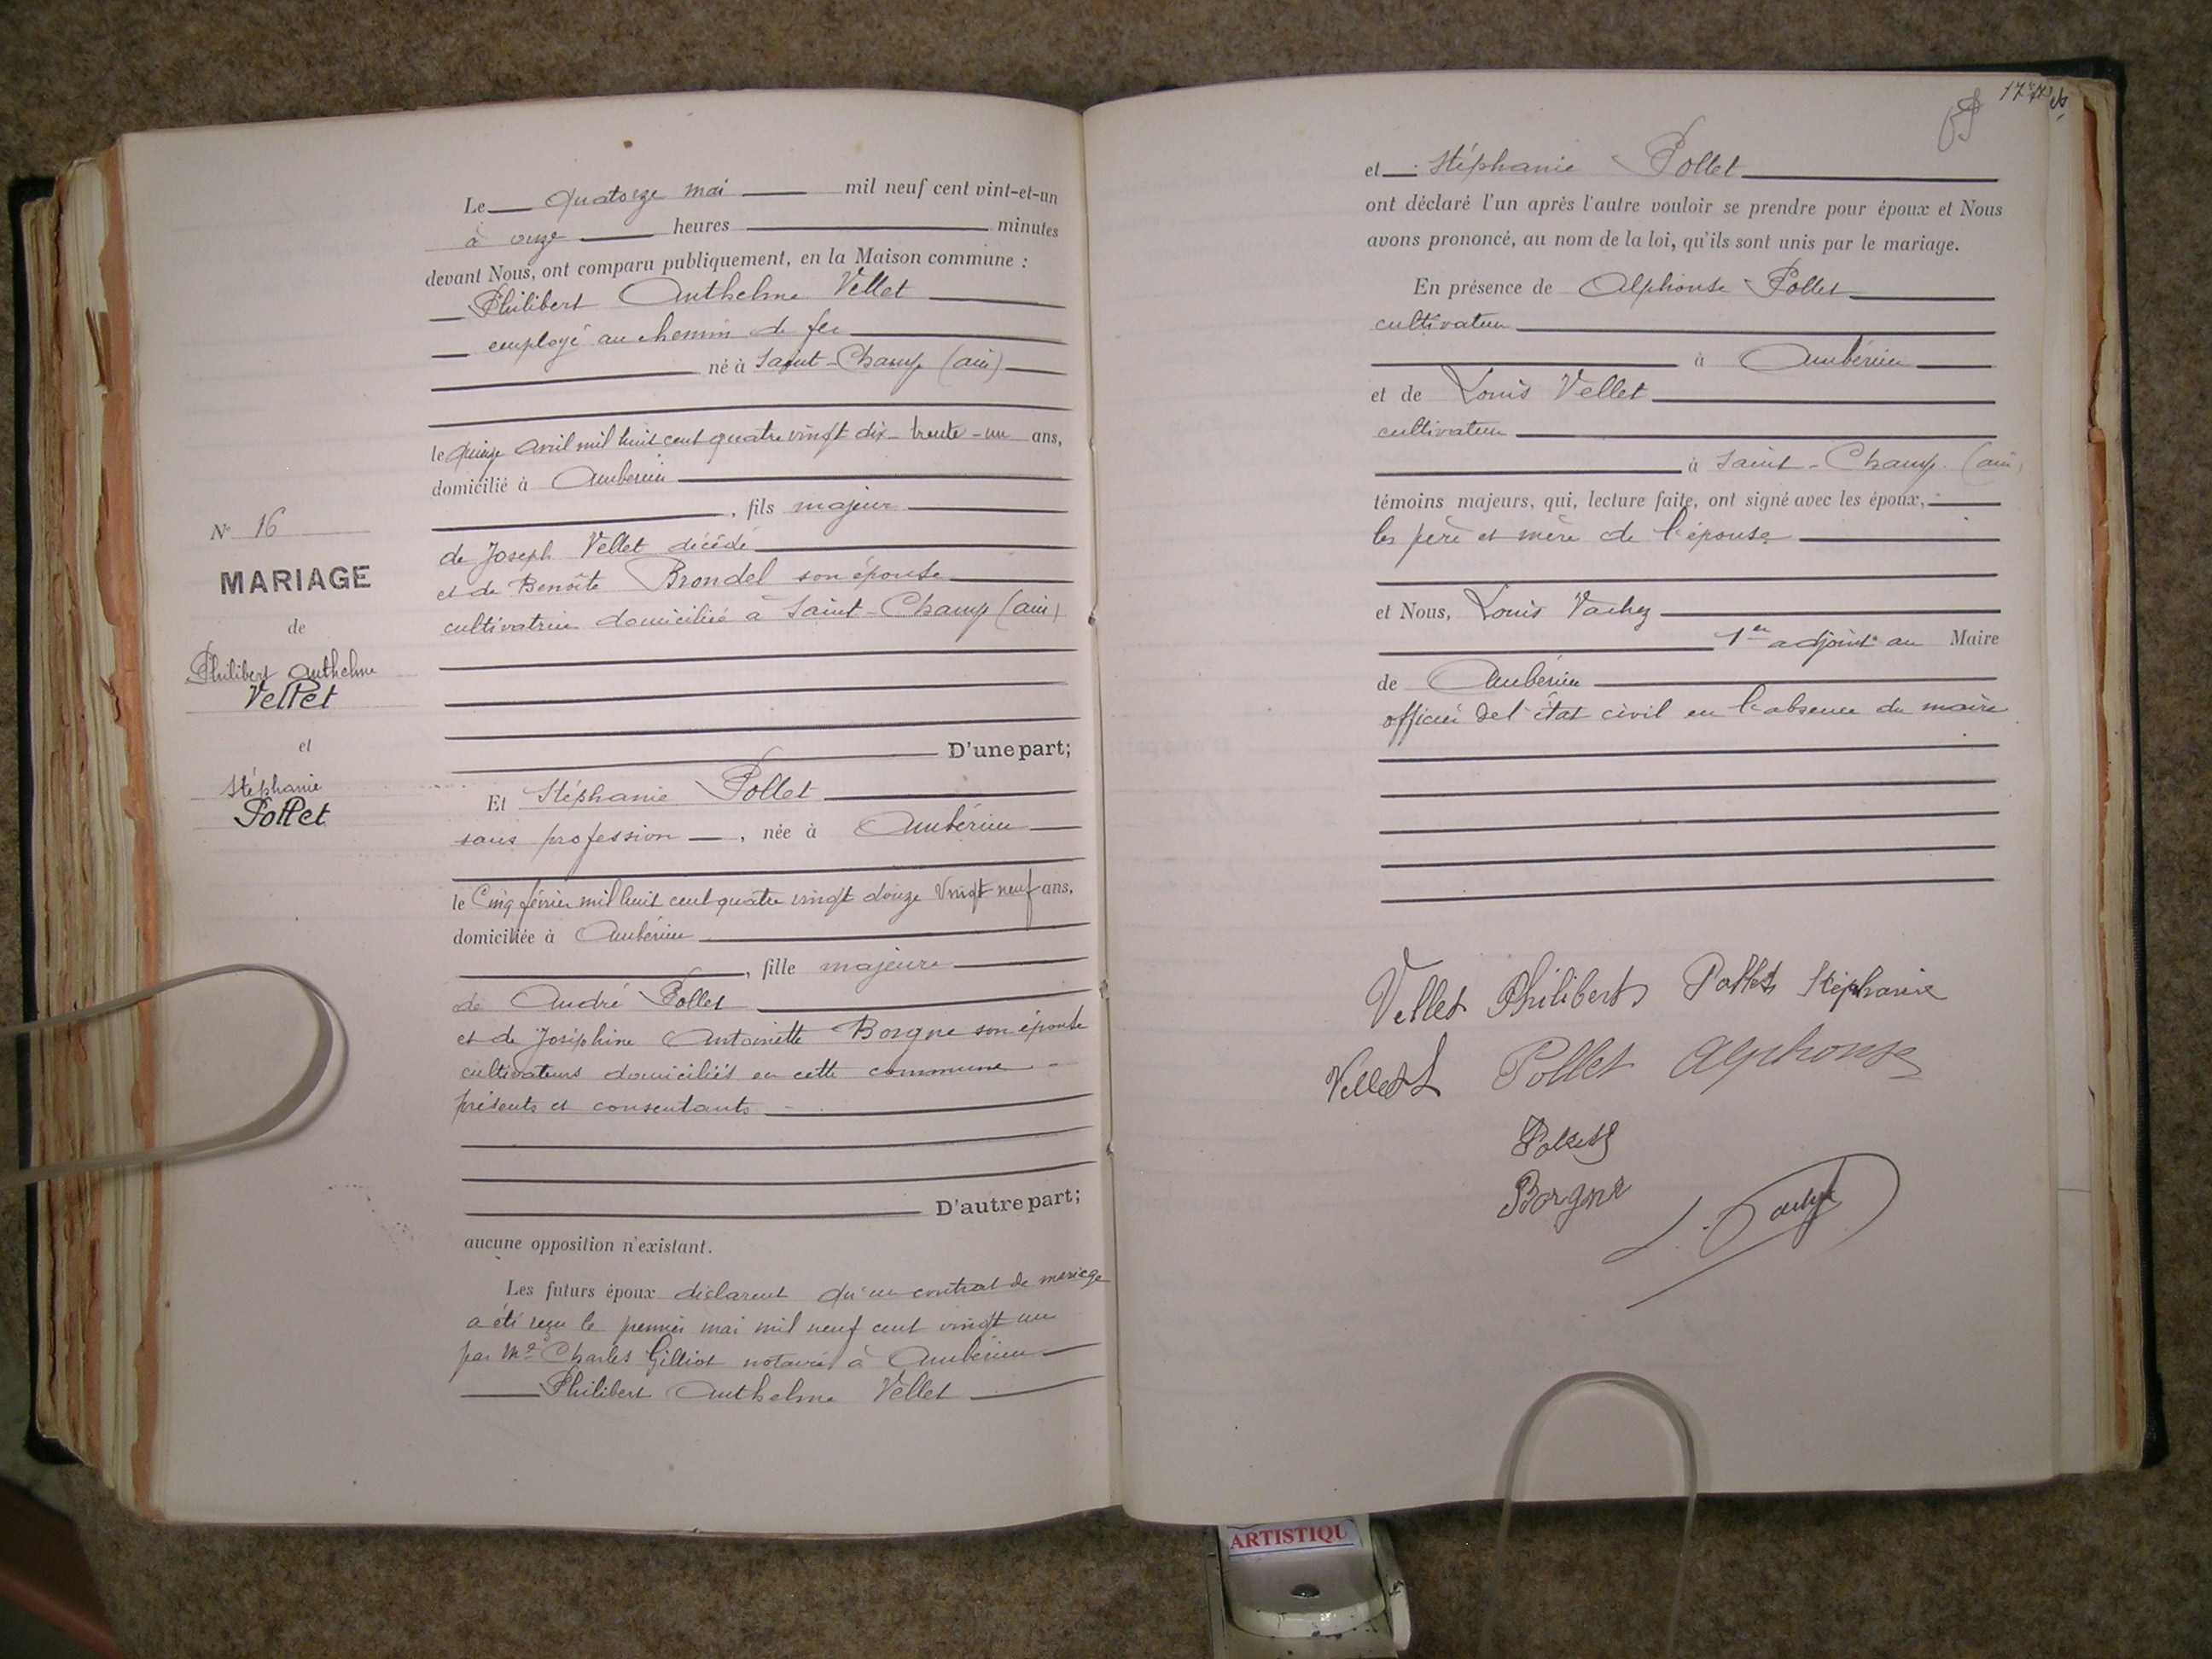 N° 16
MARIAGE
de
Philibert Anthelme
Vellet
et
Stéphanie
Pollet
Le quatorze mai mil neuf cent vint-et-un
à onze heures minutes
devant Nous, ont comparu publiquement, en la Maison commune :
Philibert Anthelme Vellet
employé au chemin de fer
né à Saint-Champ (ain)
le quinze avril mil huit cent quatre vingt dix - trente-un ans,
domicilié à Ambérieu
, fils majeur
de Joseph Vellet décédé
et de Benoîte Brondel son épouse
cultivatrice domiciliée à Saint-Champ (ain)
D'une part;
Et Stéphanie Pollet
sans profession , née à Ambérieu
le Cinq février mil huit cent quatre vingt douze Vingt neuf ans,
domiciliée à Ambérieu
, fille majeure
de André Pollet
et de Joséphine Antoinette Borgne son épouse
cultivateurs domiciliés en cette commune
présents et consentants
D'autre part;
aucune opposition n'existant.
Les futurs époux déclarent qu'un contrat de mariage
a été reçu le premier mai mil neuf cent vingt un
par Me Charles Gilliot notaire à Ambérieu
Philibert Anthelme Vellet
et Stéphanie Pollet
ont déclaré l'un après l'autre vouloir se prendre pour époux et Nous
avons prononcé, au nom de la loi, qu'ils sont unis par le mariage.
En présence de Alphonse Pollet
cultivateur
à Ambérieu
et de Louis Vellet
cultivateur
à Saint-Champ (ain)
témoins majeurs, qui, lecture faite, ont signé avec les époux,
les père et mère de l'épouse
et Nous, Louis Vachez
1er adjoint au Maire
de Ambérieu
officier de l'état civil en l'absence du maire
Vellet Philibert Pollet Stéphanie
Vellet L Pollet Alphonse
Borgne
ARTISTIQU